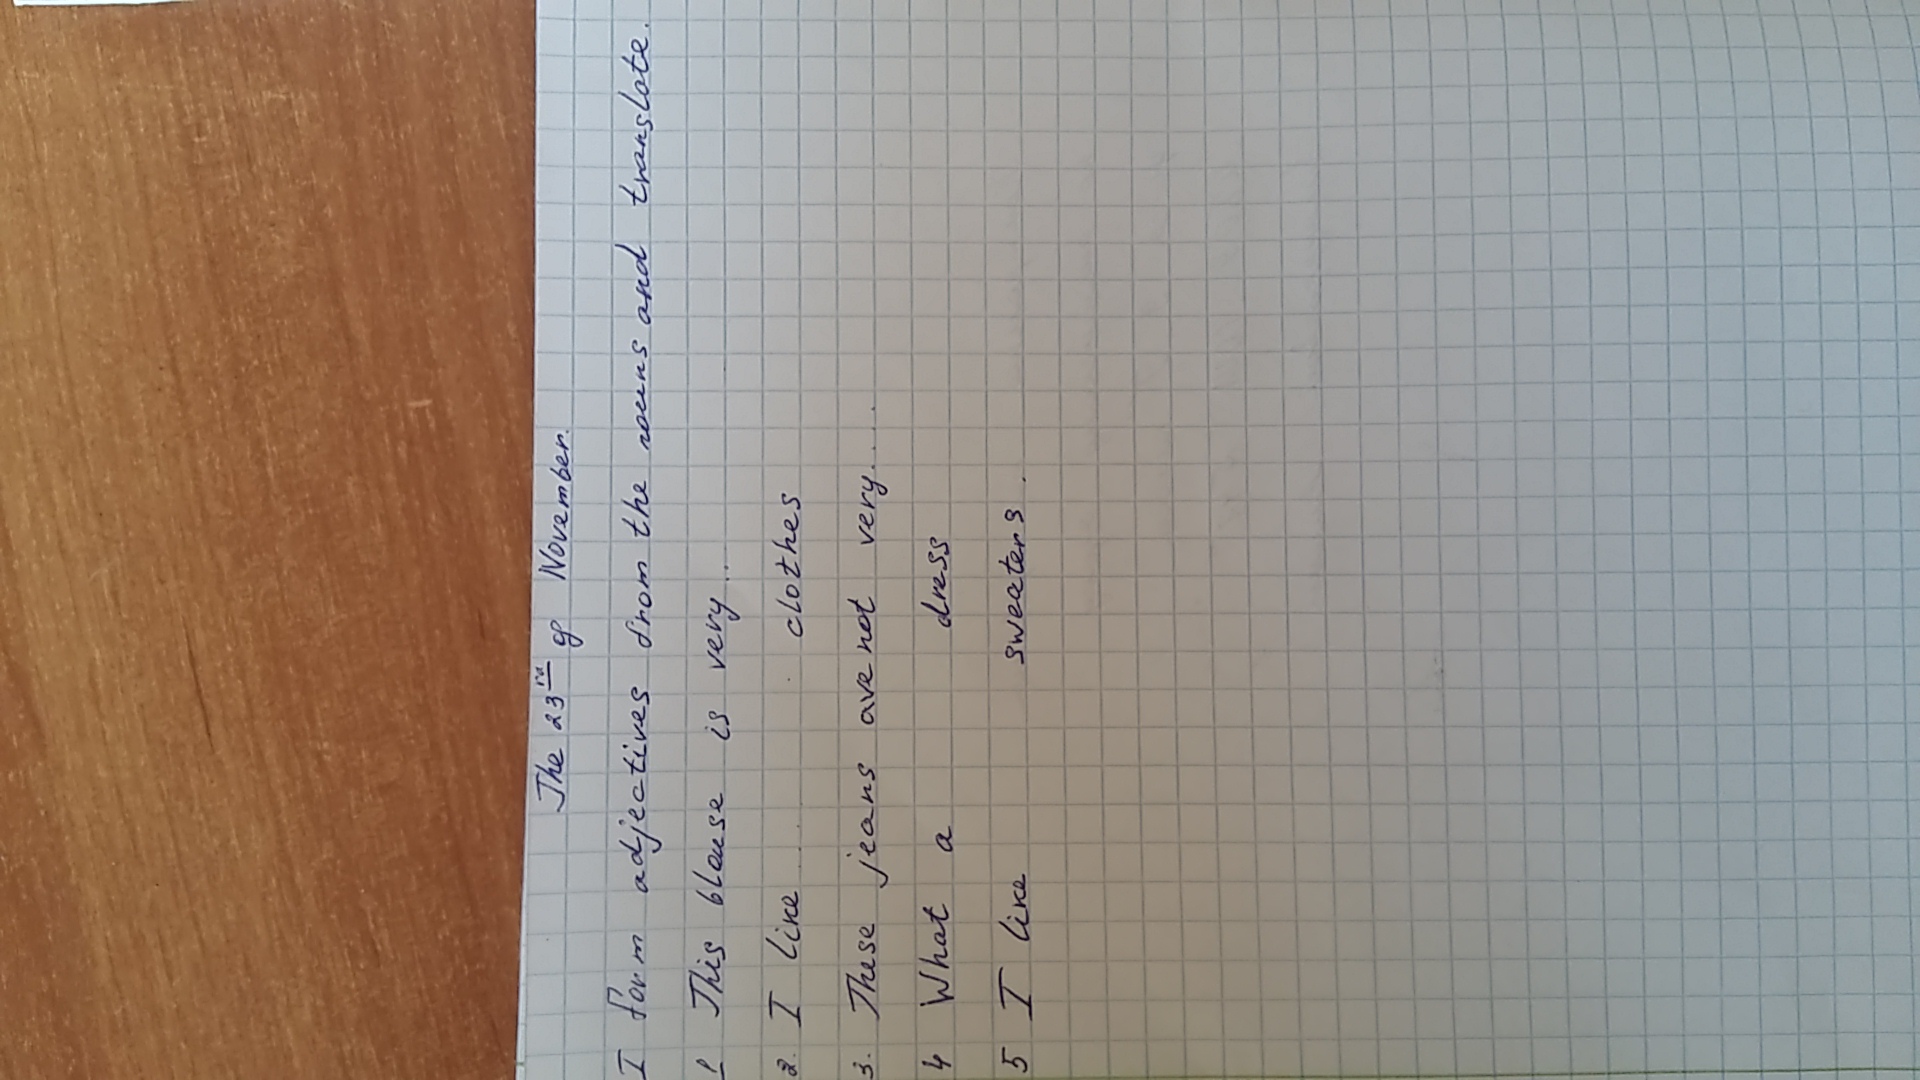 The 23rd of November.
I Form adjectives from the nouns and translate.
1 This blouse is very...
2. I like...... clothes
3. These jeans are not very....
4 What a dress
5 I like sweaters.